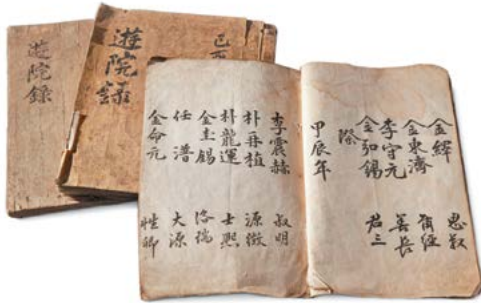 遊院錄
遊院錄
金繹 思叙
金東濟
李守元 善長
金弘錫 君三
際
甲辰年
李震赫 叔明
朴再植 源徵
朴龍運 士熙
金圭錫 洛瑞
任潽 大源
金命元 性卿